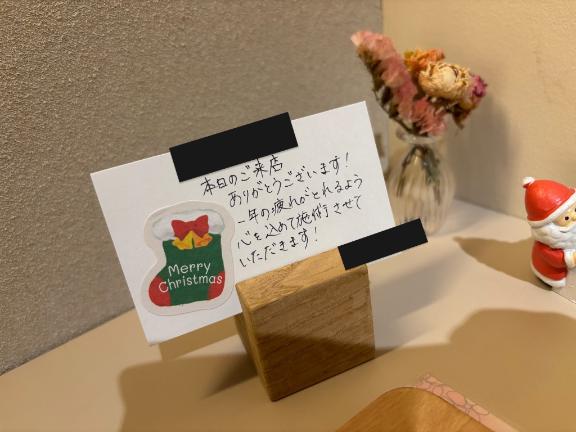 本日のご来店
ありがとうございます！
一年の疲れがとれるよう
心を込めて施術させて
いただきます！
Merry
Christmas